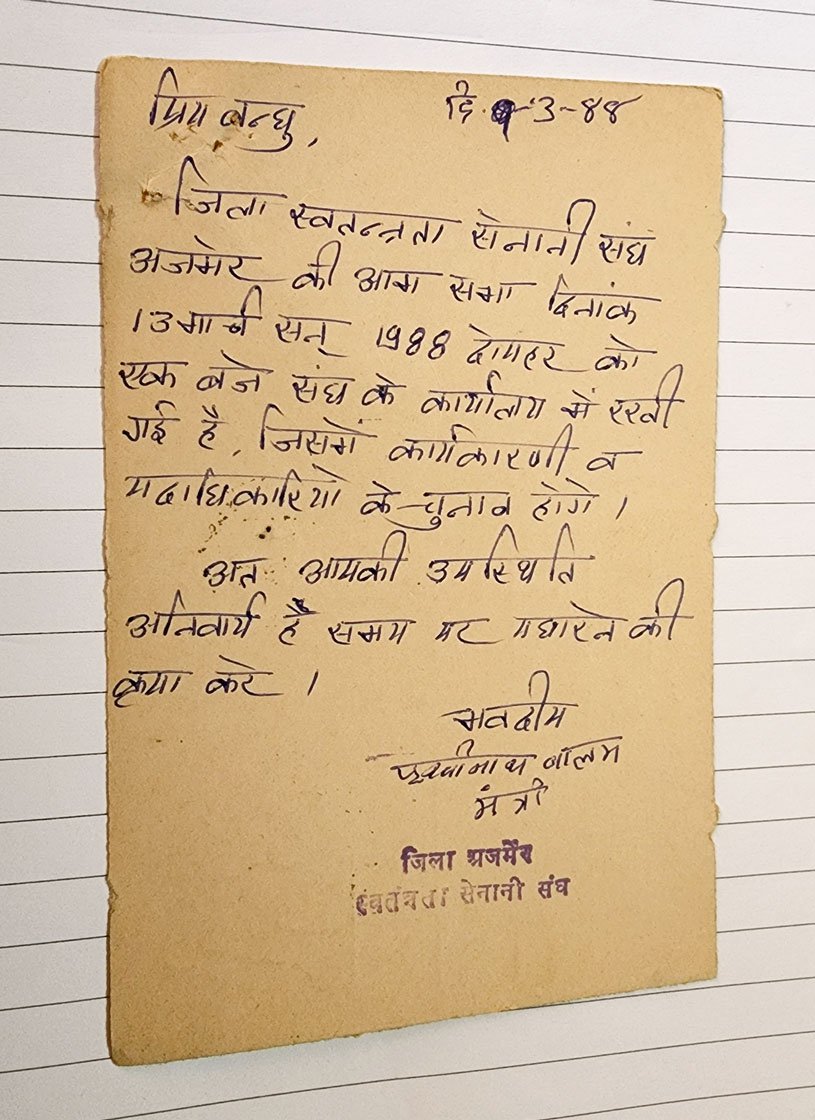 प्रिय बन्धु, दि. 9-3-88
जिला स्वतन्त्रता सेनानी संघ
अजमेर की आम सभा दिनांक
13 मार्च सन् 1988 दोपहर को
एक बजे संघ के कार्यालय में रखी
गई है, जिसमें कार्यकारणी व
पदाधिकारियो के चुनाव होगे।
अत आपकी उपस्थिति
अनिवार्य है समय पर पधारने की
कृपा करे।
भवदीय
मंत्री
जिला अजमेंर
स्वतंत्रता सेनानी संघ